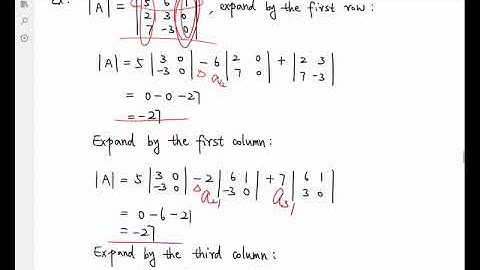 Ex: |A| = |5 6 1; 2 3 0; 7 -3 0|, expand by the first row:
|A| = 5 |3 0; -3 0| - 6 |2 0; 7 0| + |2 3; 7 -3|
= 0 - 0 - 27
= -27
Expand by the first column:
|A| = 5 |3 0; -3 0| - 2 |6 1; -3 0| + 7 |6 1; 3 0|
a21 a31
= 0 - 6 - 21
= -27
Expand by the third column: